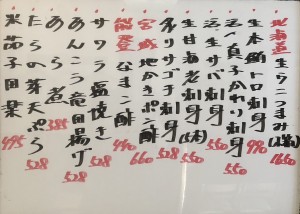 北海道 生ウニつまみ(塩) 1650
生本鮪トロ刺身 990
活〆真子かれい刺身 550
活〆サバ刺身 550
生甘海老刺身(5尾) 550
タリサゴチ刺身 528
宮城 地かきポン酢 660
能登 なまこ酢 440
サワラ塩焼き 528
あんこう竜田揚げ 528
あら煮 385
たらの芽天ぷら 528
米茄子田楽 495